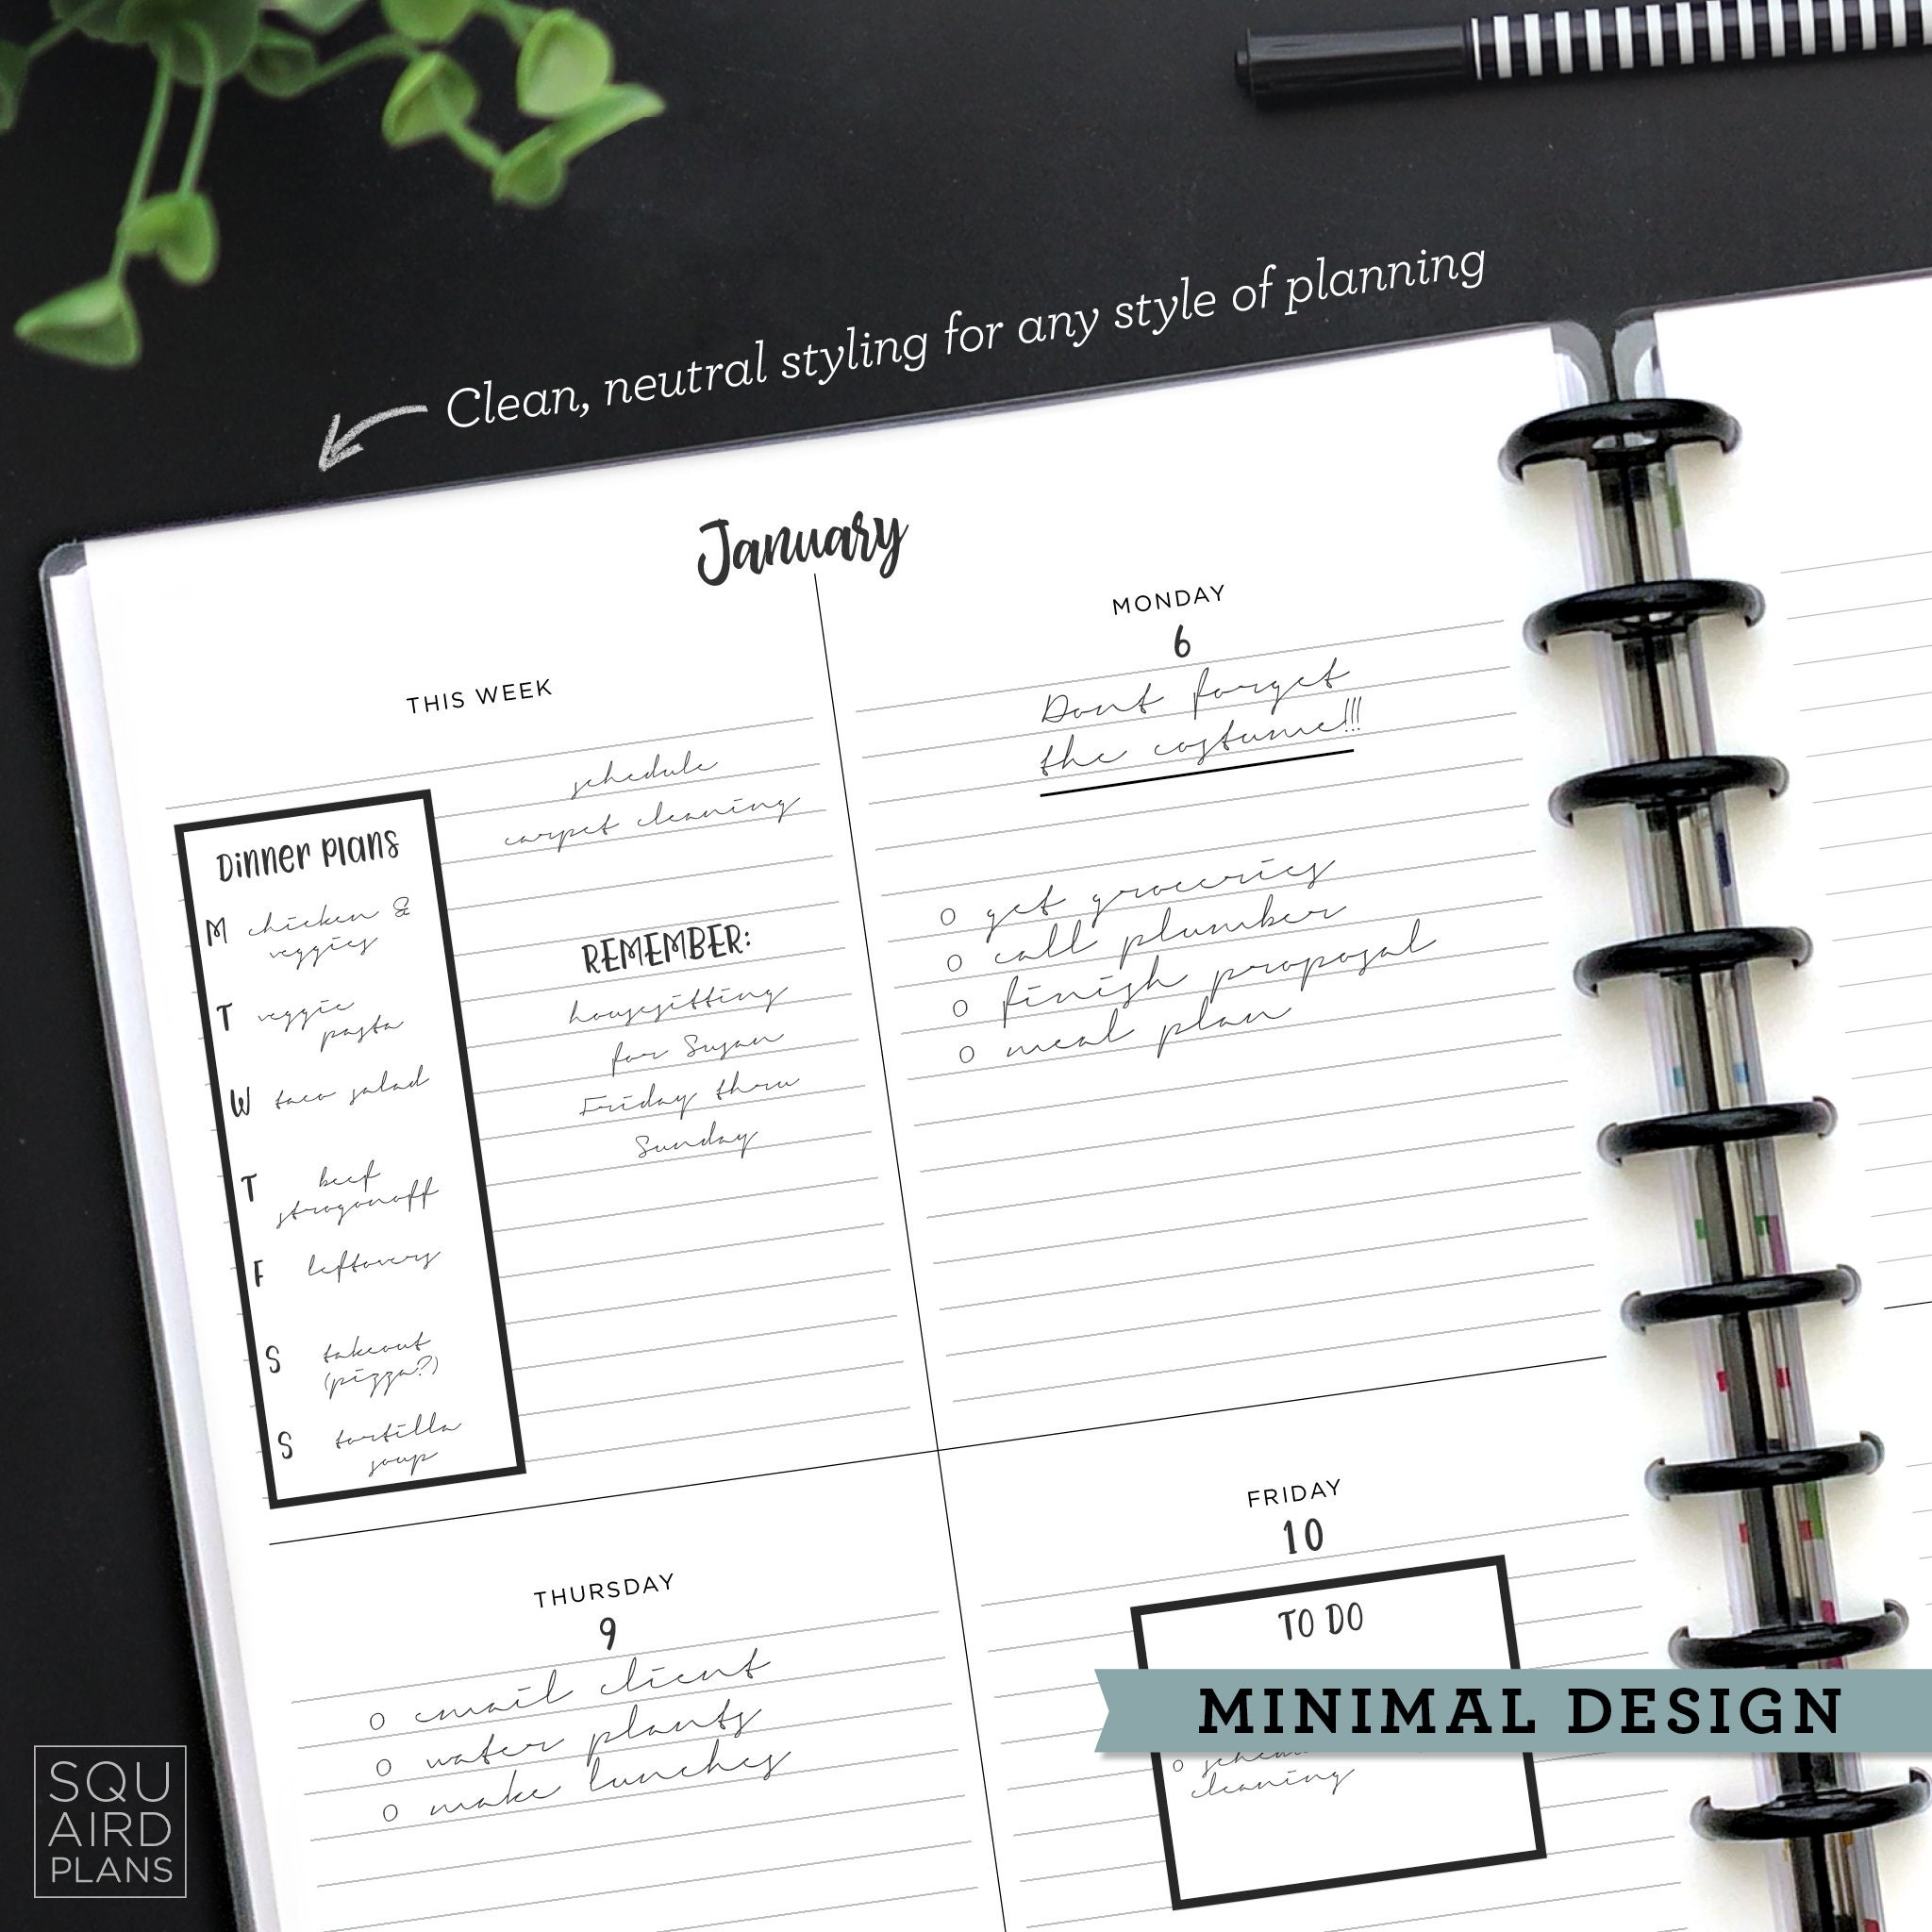 Clean, neutral styling for any style of planning
January
THIS WEEK
schedule
carpet cleaning
Dinner Plans
M chicken &
veggies
T veggie
pasta
W taco salad
T beef
strogonoff
F leftovers
S takeout
(pizza?)
S tortilla
soup
REMEMBER:
housesitting
for Susan
Friday thru
Sunday
MONDAY
6
Dont forget
the costume!!!
get groceries
call plumber
finish proposal
meal plan
THURSDAY
9
email client
water plants
make lunches
FRIDAY
10
TO DO
cleaning
MINIMAL DESIGN
SQU
AIRD
PLANS